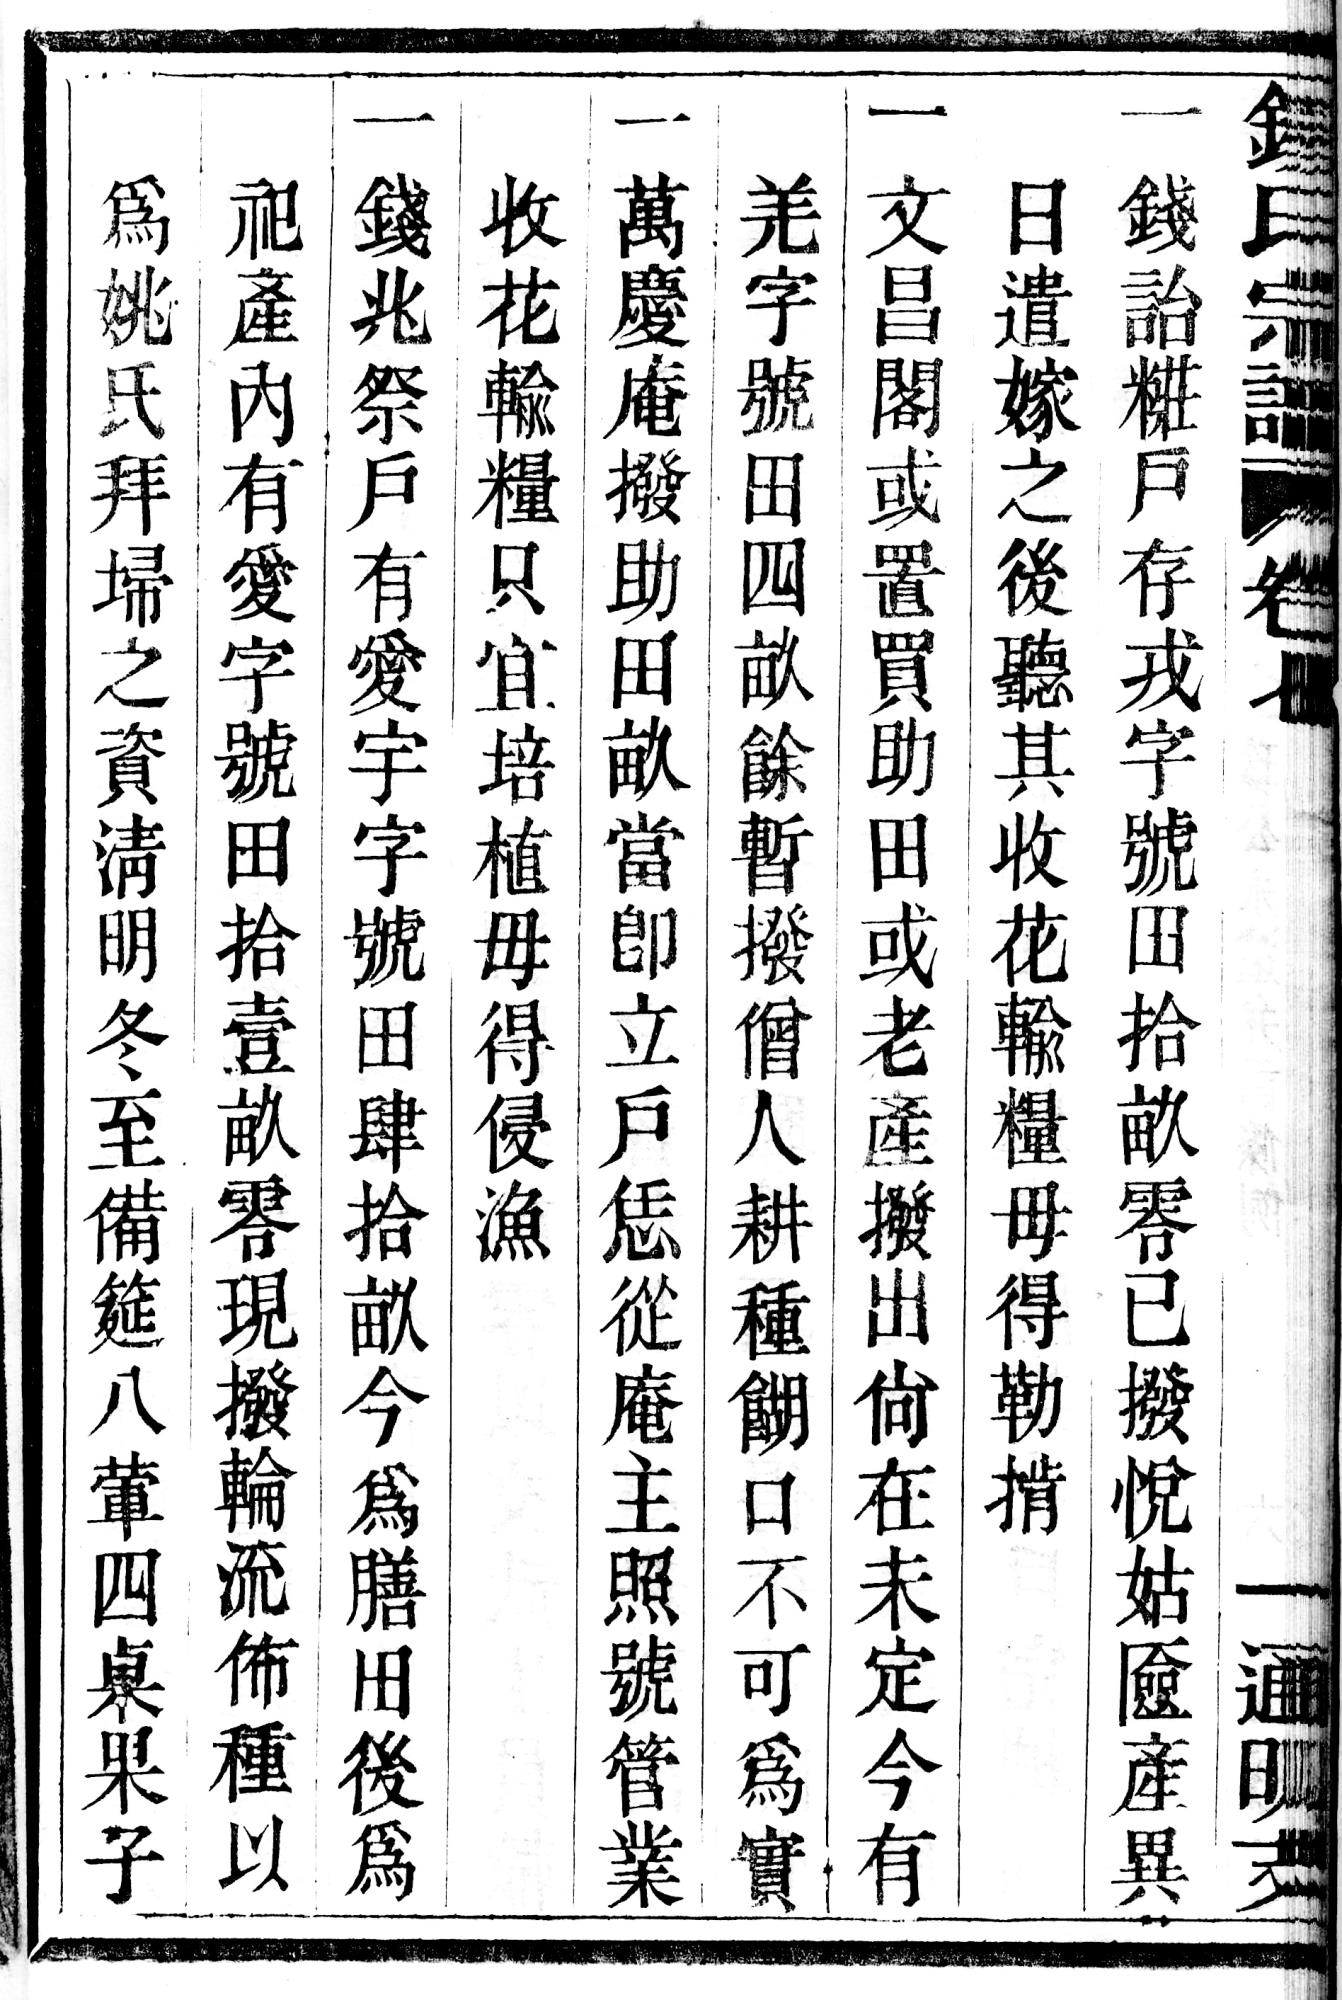 錢氏宗譜 卷七 一 通明
一錢詒糚戶存戎字號田拾畝零已撥悅姑匳產異
日遣嫁之後聽其收花輸糧毋得勒掯
一文昌閣或置買助田或老產撥出尙在未定今有
羌字號田四畝餘暫撥僧人耕種餬口不可爲實
一萬慶庵撥助田畝當卽立戶恁從庵主照號管業
收花輸糧只宜培植毋得侵漁
一錢兆祭戶有愛宇字號田肆拾畝今爲膳田後爲
祀產內有愛字號田拾壹畝零現撥輪流佈種以
爲姚氏拜埽之資淸明冬至備筵八葷四桌果子